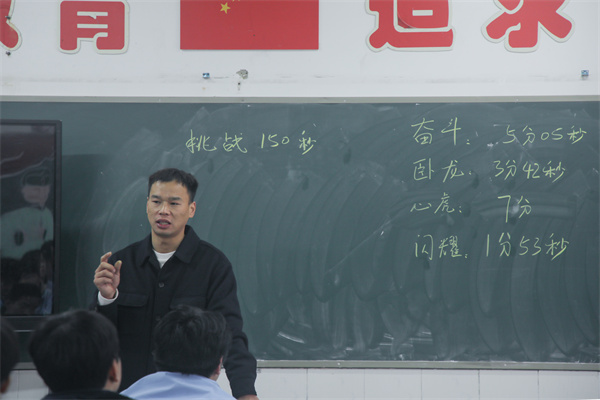 育 追求
挑战150秒
奋斗: 5分05秒
卧龙: 3分42秒
心虎: 7分
闪耀: 1分53秒